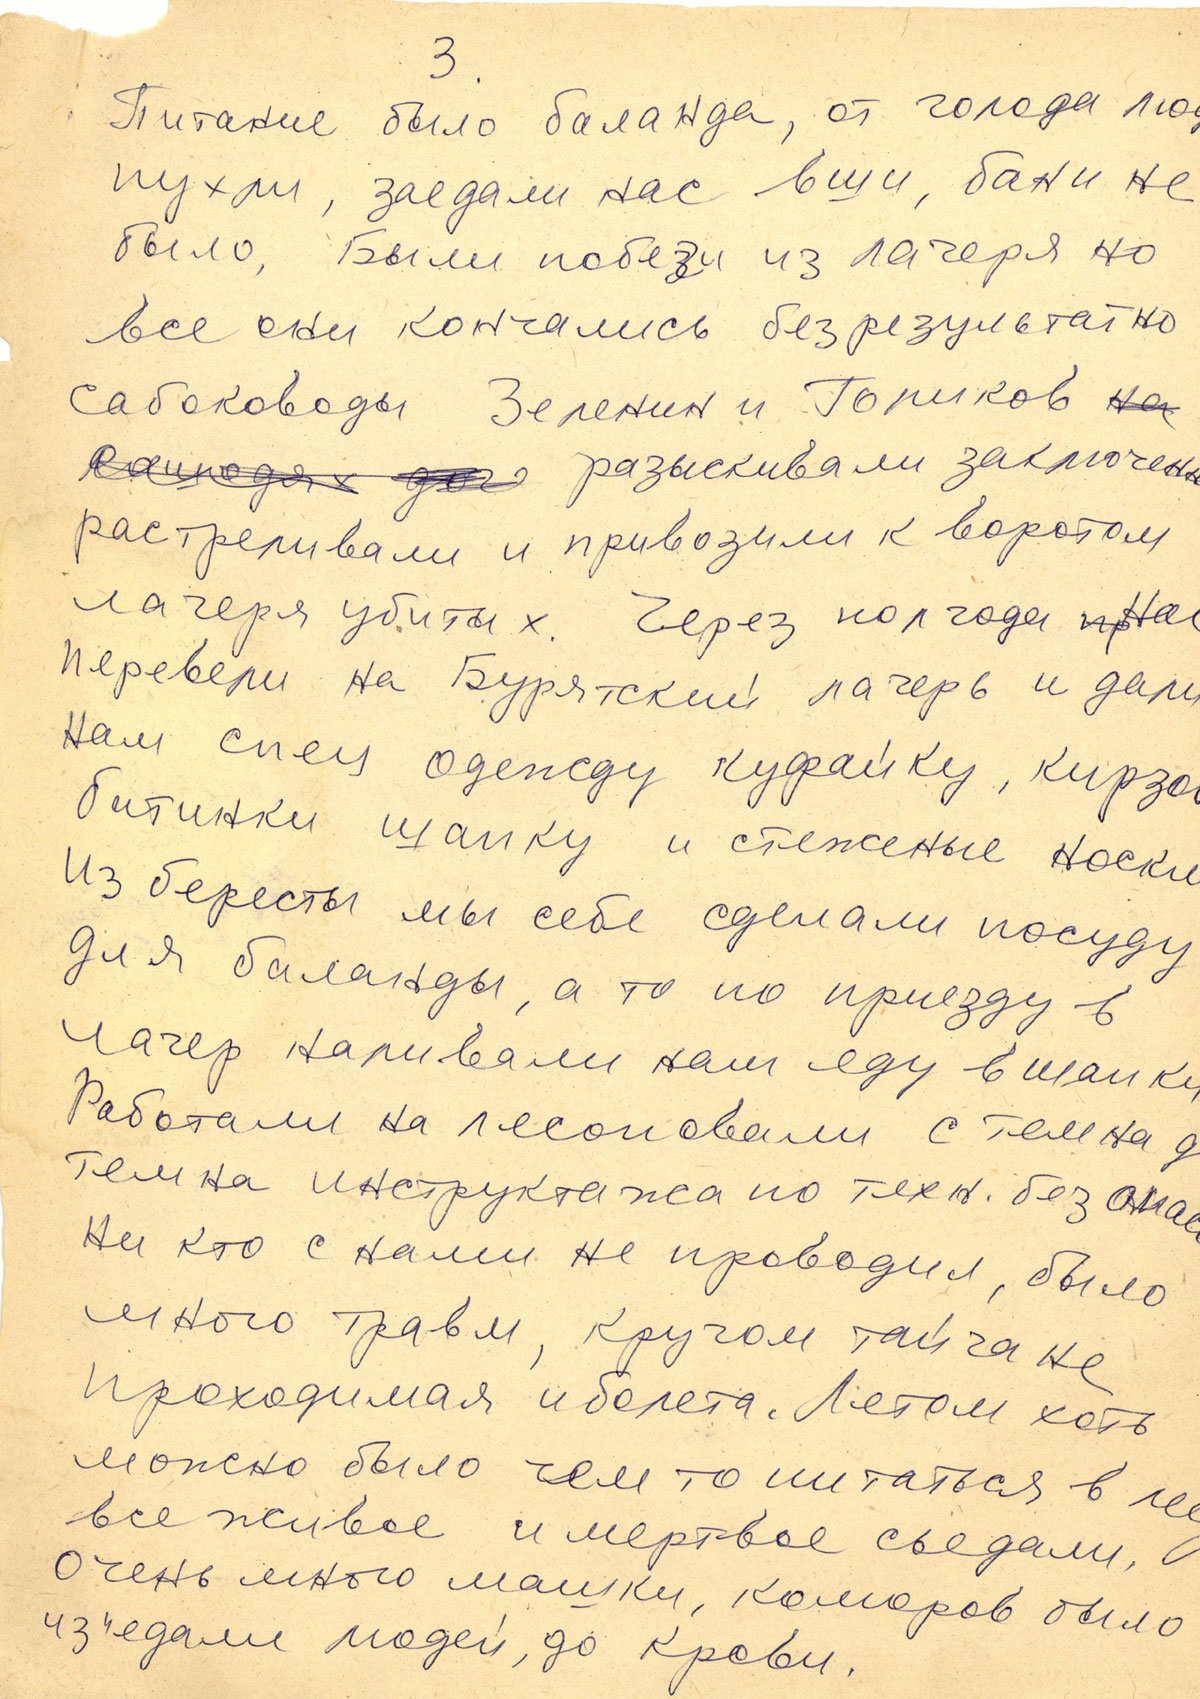 3.
Питание было баланда, от голода люд
пухли, заедали нас вши, бани не
было, Были побези из лагеря но
все они кончались безрезультатно
сабоководы Зеленин и Голиков на
разыскивали заключенн
растреливали и привозили к воротом
лагеря убитых. Через полгода нас
перевели на Бурятский лагерь и дали
нам спец одежду куфайку, кирзов
битинки шапку и стеженые носки
Из бересты мы себе сделали посуду
для баланды, а то по приезду в
лагер наливали нам еду в шапки,
Работали на лесоповали с темна д
темна инструктажа по техн. безопас
Ни кто с нами не проводил, было
много травм, кругом тайга не
проходимая и болета. Летом хоть
можно было чем то питаться в лес
все живое и мертвое сьедали,
Очень много машки, комаров было
из"едали людей, до крови.